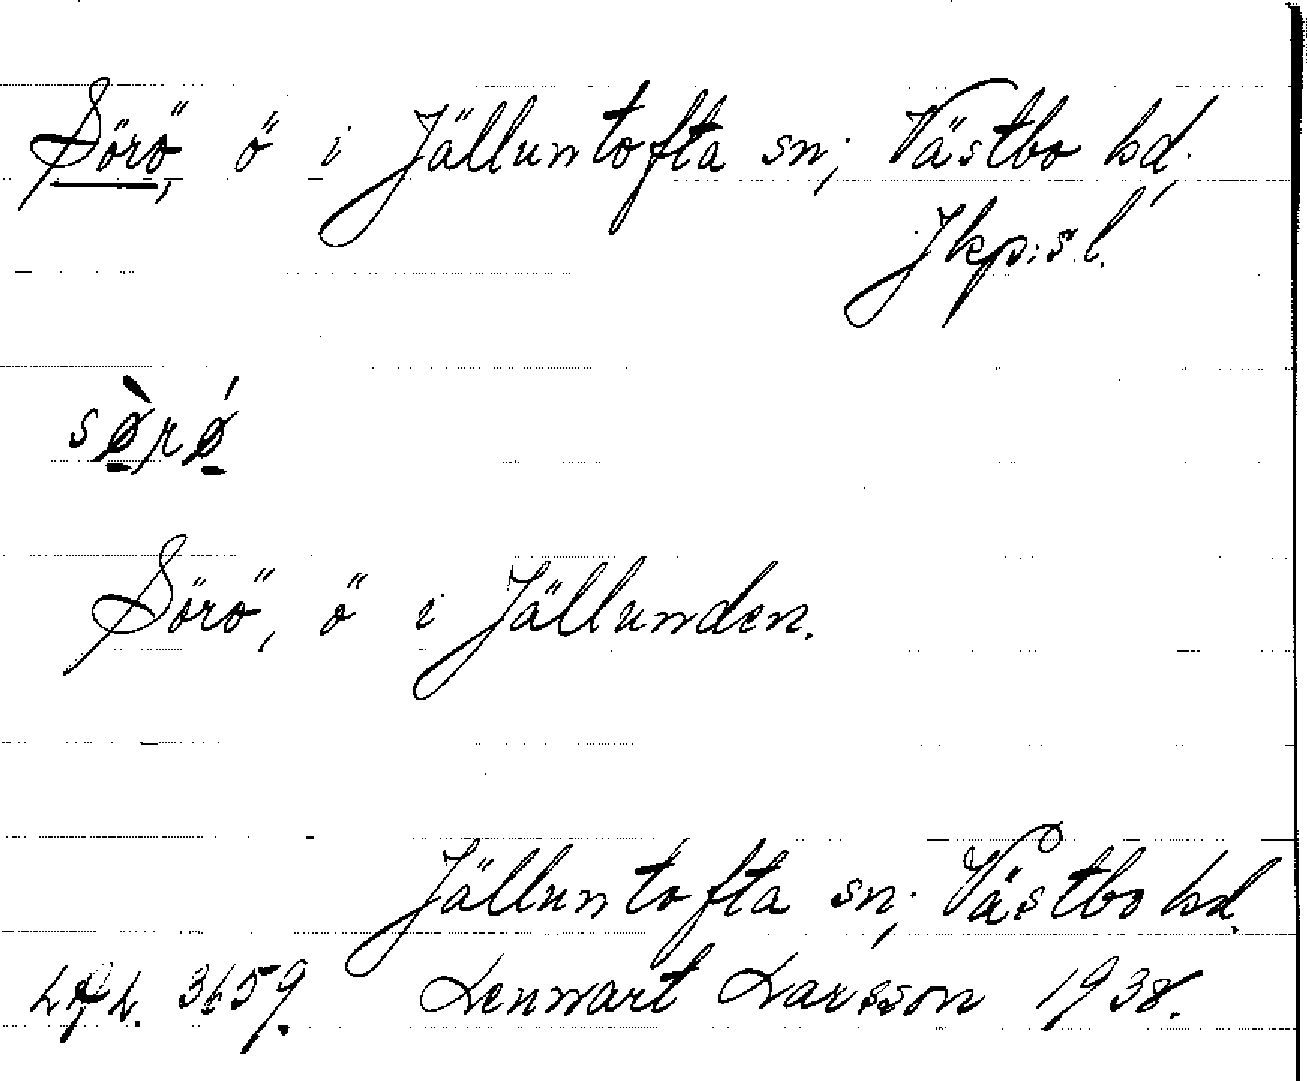 Sörö, ö i Jälluntofta sn; Västbo hd,
Jkp:s l.
sø̀rǿ
Sörö, ö i Jällunden.
Jälluntofta sn; Västbo hd.
3659. Lennart Larsson 1938.